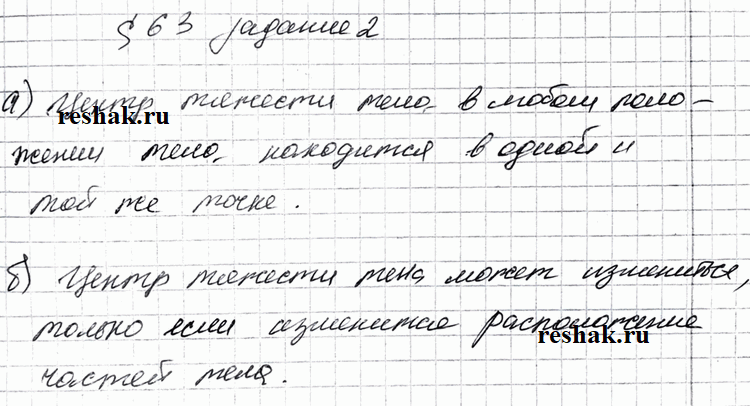 § 63 задание 2
а) Центр тяжести тела в любом поло-
reshak.ru
жении тела находится в одной и
той же точке.
б) Центр тяжести тела может измениться,
только если изменится расположение
reshak.ru
частей тела.